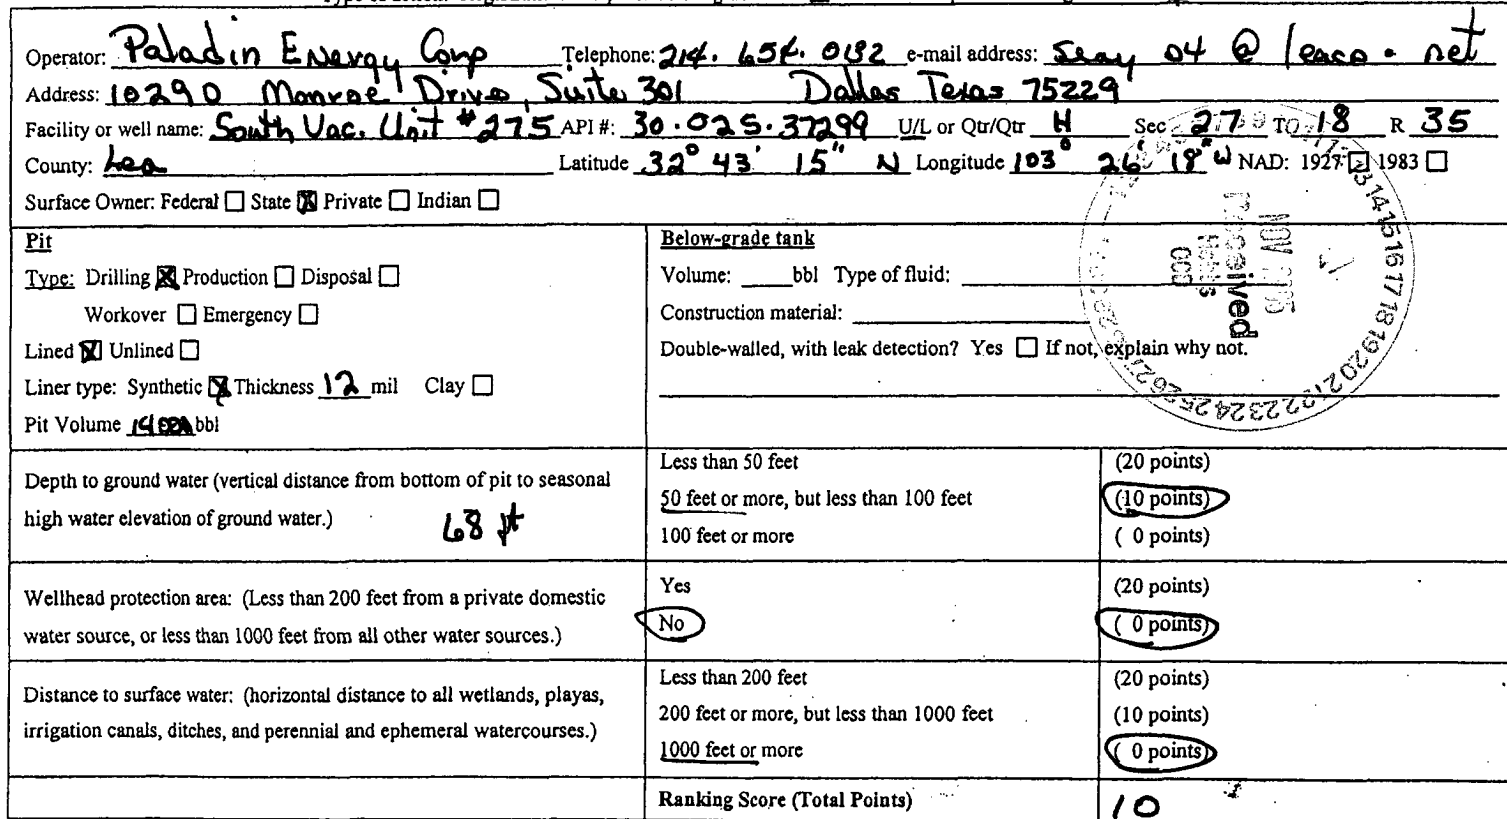 Operator: Paladin Energy Corp Telephone: 214. 654. 0132 e-mail address: sray 04 @ leaco. net
Address: 10290 Monroe Drive, Suite 301 Dallas Texas 75229
Facility or well name: South Vac. Unit #275 API #: 30.025.37299 U/L or Qtr/Qtr H Sec 27 T 18 R 35
County: Lea Latitude 32° 43' 15" N Longitude 103° 26' 18" W NAD: 1927 ☐ 1983 ☐
Surface Owner: Federal ☐ State ☒ Private ☐ Indian ☐
Pit
Type: Drilling ☒ Production ☐ Disposal ☐
Workover ☐ Emergency ☐
Lined ☒ Unlined ☐
Liner type: Synthetic ☒ Thickness 12 mil Clay ☐
Pit Volume bbl
Below-grade tank
Volume: ____bbl Type of fluid:
Construction material:
Double-walled, with leak detection? Yes ☐ If not, explain why not.
NOV 2005
Received
Hobbs
OCD
13 14 15 16 17 18 19 20 21 22 23 24 25 26 27
Depth to ground water (vertical distance from bottom of pit to seasonal
high water elevation of ground water.) 68 ft
Less than 50 feet (20 points)
50 feet or more, but less than 100 feet (10 points)
100 feet or more ( 0 points)
Wellhead protection area: (Less than 200 feet from a private domestic
water source, or less than 1000 feet from all other water sources.)
Yes (20 points)
No ( 0 points)
Distance to surface water: (horizontal distance to all wetlands, playas,
irrigation canals, ditches, and perennial and ephemeral watercourses.)
Less than 200 feet (20 points)
200 feet or more, but less than 1000 feet (10 points)
1000 feet or more ( 0 points)
Ranking Score (Total Points) 10